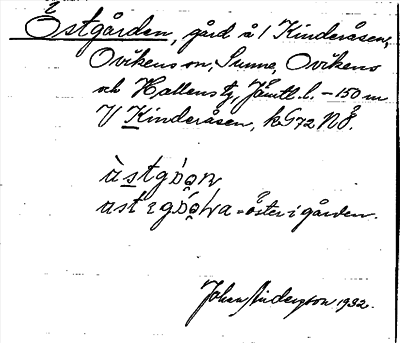 Östgården, gård å / Kinderåsen,
Ovikens sn, Sunne, Ovikens
och Hallens tg, Jämtl. l. – 150 m
V Kinderåsen, kG 72 NÖ.
àstgɷ́ɷn
ast i gɷ́ɷṇa = öster i gården.
Johan Anderson 1932.